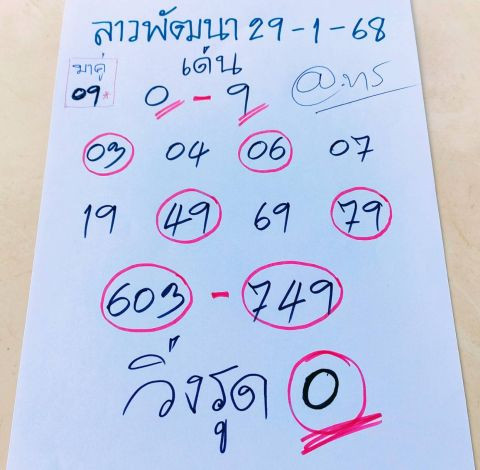 ลาวพัฒนา 29-1-68
เด่น
มาคู่
09*
0 - 9
03 04 06 07
19 49 69 79
603 - 749
วิ่งรูด 0